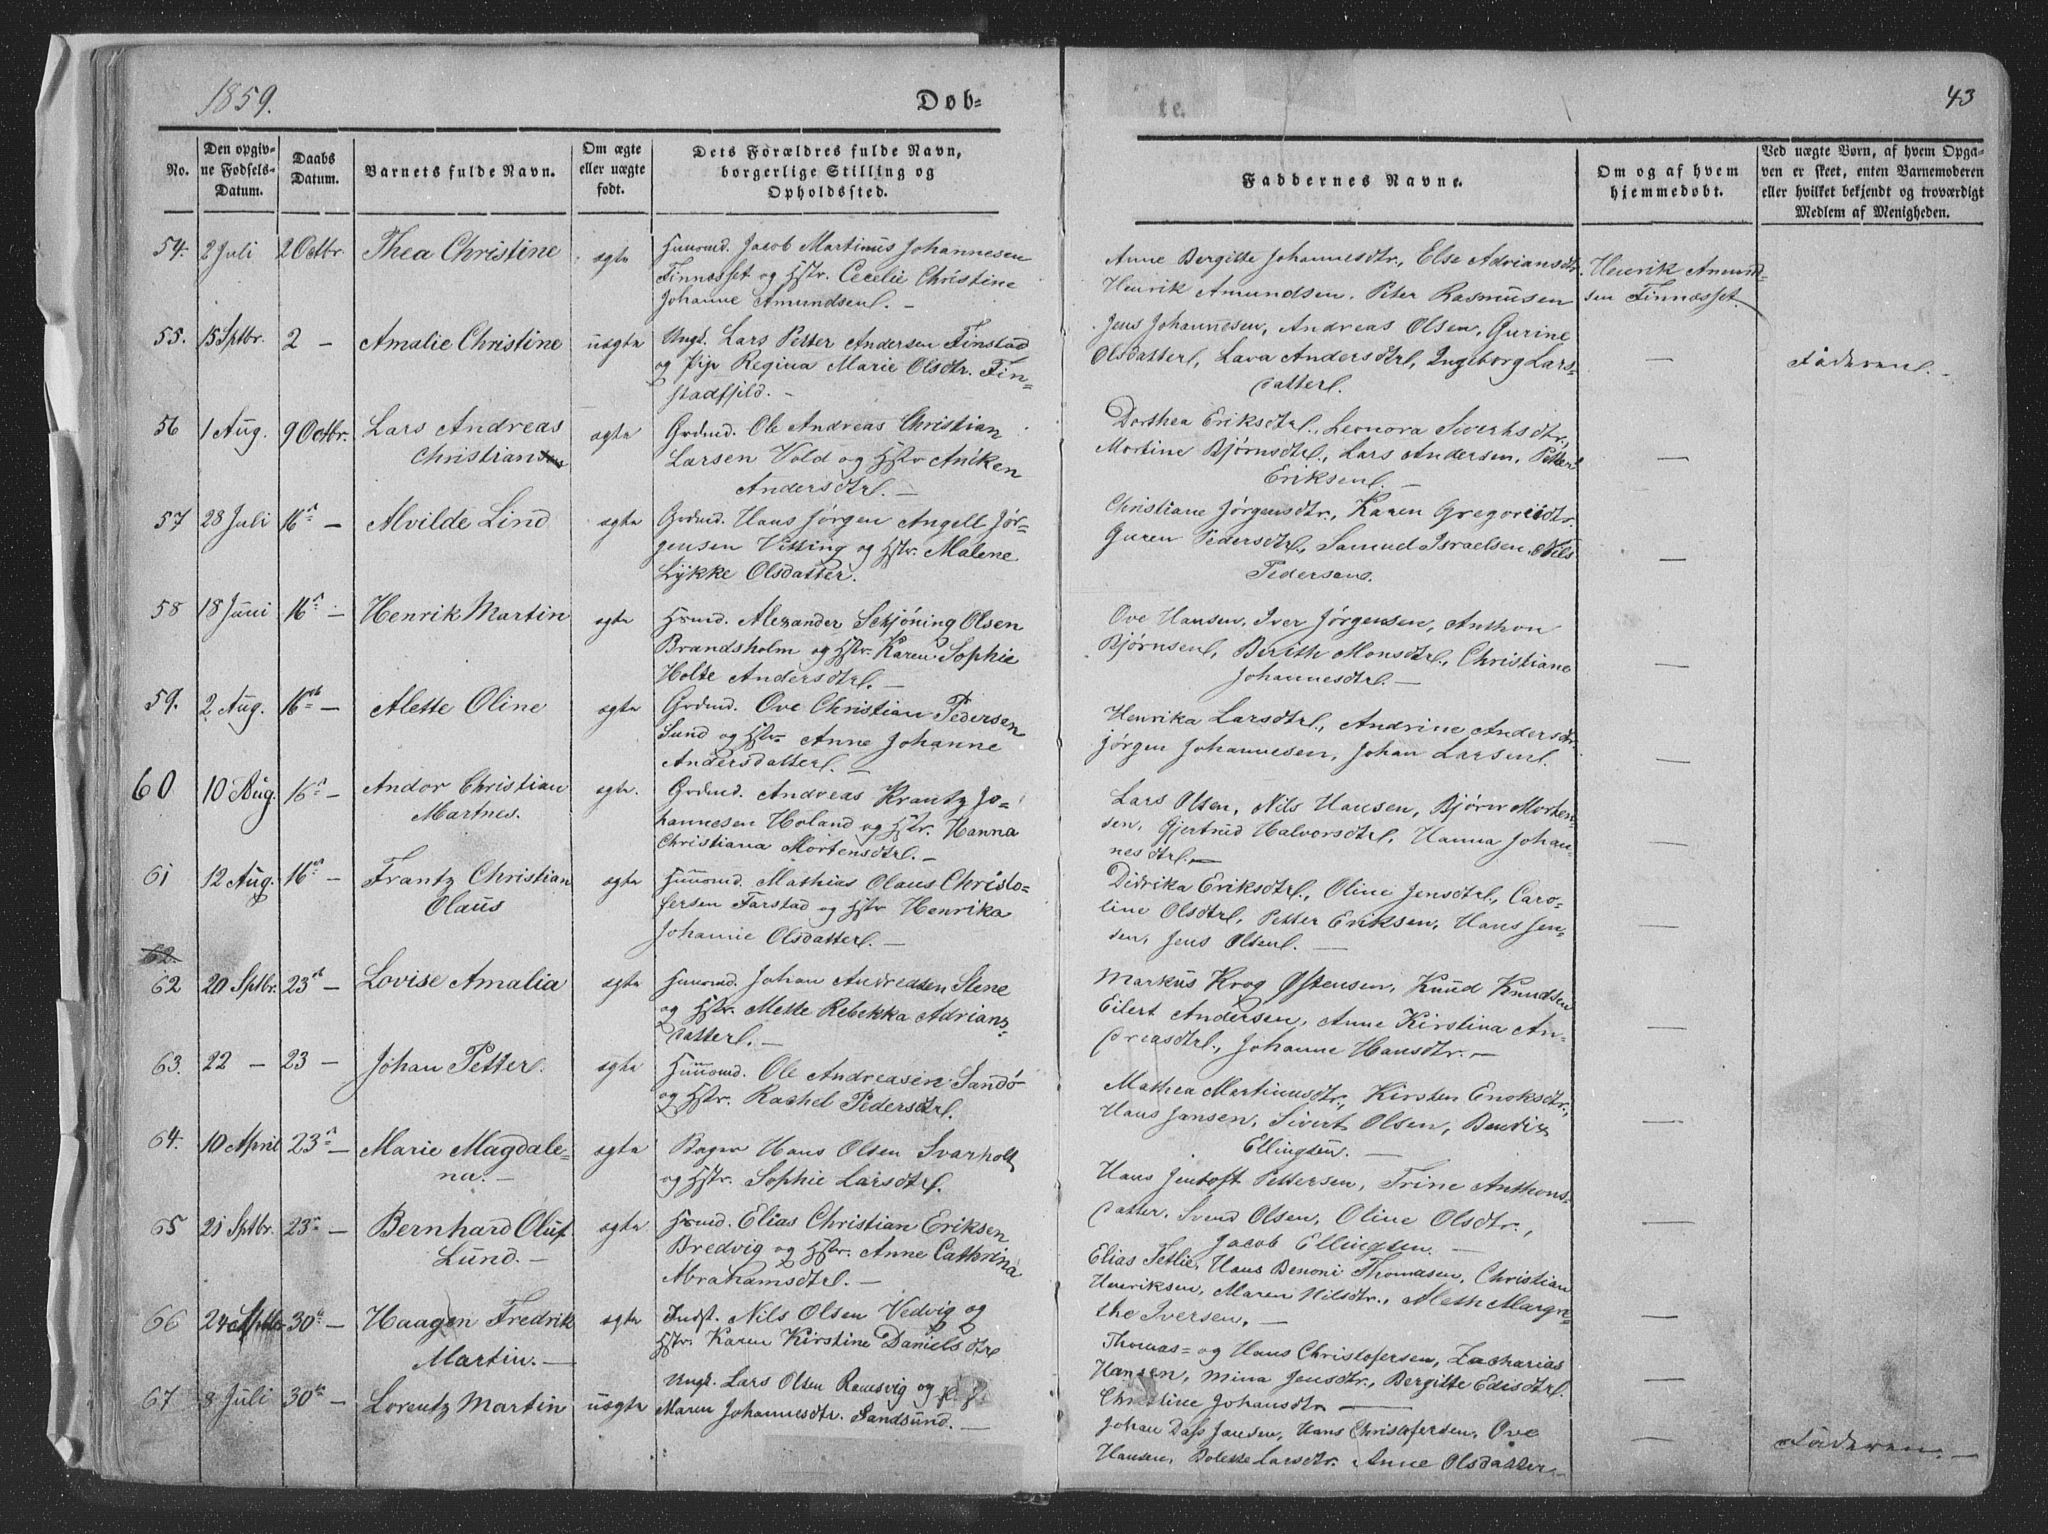 1859.
Døb-
te.
43
No.
Den opgiv-
ne Fødsels-
Datum.
Daabs
Datum.
Barnets fulde Navn.
Om ægte
eller uægte
født.
Dets Forældres fulde Navn,
borgerlige Stilling og
Opholdssted.
Faddernes Navne.
Om og af hvem
hjemmedøbt.
Ved uægte Børn, af hvem Opga-
ven er skeet, enten Barnemoderen
eller hvilket bekjendt og troværdigt
Medlem af Menigheden.
54. 2 Juli 2 Octbr. Thea Christine ægte
Huusmd. Jacob Martinus Johannesen
Finnæsset og Hstr. Cecelie Christine
Johanne Amundsen. —
Anne Bergitte Johannesdtr., Else Adriansdtr.
Henrik Amundsen, Peter Rasmusen
Henrik Amund-
sen Finnæsset.
55. 15 Sptbr. 2 — Amalie Christine uægte
Ungk. Lars Petter Andersen Finstad
og Pige Regina Marie Olsdtr. Fin-
stadfjeld. —
Jens Johannesen, Andreas Olsen, Gurine
Olsdatter, Lava Andersdtr., Ingeborg Lars-
datter.
—
Faderen. —
56 1 Aug. 9 Octbr. Lars Andreas
Christian
ægte
Grdmd. Ole Andreas Christian
Larsen Vold og Hstr Aniken
Andersdtr. —
Dorthea Eriksdtr., Leonora Siverhsdtr.,
Martine Bjørnsdtr., Lars Andersen, Petter
Eriksen. —
—
57 28 Juli 16de — Alvilde Lind ægte
Grdmd. Hans Jørgen Angell Jør-
gensen Vitting og Hstr. Malene
Lykke Olsdatter.
Christiane Jørgensdtr., Karen Gregoriidtr.
Guren Pedersdtr., Samuel Israelsen, Nils
Pedersen.
—
58 18 Juni 16de — Henrik Martin ægte
Hsmd. Alexander Schjøning Olsen
Brandsholm og Hstr. Karen Sophie
Holte Andersdtr. —
Ove Hansen, Iver Jørgensen, Anthon
Bjørnsen, Berith Monsdtr., Christiane
Johannesdtr. —
—
59. 2 Aug. 16de — Alette Oline ægte
Grdmd. Ove Christian Pedersen
Sund og Hstr. Anne Johanne
Andersdatter. —
Henrika Larsdtr., Andrine Andersdtr.
Jørgen Johannesen, Johan Larsen.
—
60 10 Aug. 16de — Andor Christian
Martnes.
ægte.
Grdmd. Andreas Krantz Jo-
hannesen Holand og Hstr. Hanna
Christiana Mortensdtr. —
Lars Olsen, Nils Hansen, Bjørn Morten-
sen, Gjertrud Halvorsdtr., Hanna Johan-
nesdtr. —
—
61 12 Aug. 16de — Frantz Christian
Olaus
ægte
Huusmd. Mathias Olaus Christo-
fersen Farstad og Hstr Henrika
Johanne Olsdatter. —
Didrika Eriksdtr., Oline Jensdtr., Caro-
line Olsdtr., Petter Eriksen, Hans Jen-
sen, Jens Olsen. —
—
62.
62 20 Sptbr. 23de — Lovise Amalia ægte
Huusmd. Johan Andreasen Stene
og Hstr. Mette Rebekka Adrians-
datter. —
Markus Krog Østensen, Knud Knudsen
Eilert Andersen, Anne Kirstina An-
dreasdtr., Johanne Hansdtr. —
—
63. 22 — 23 — Johan Petter. ægte
Huusmd. Ole Andreasen Sandø
og Hstr. Rachel Pedersdtr.
Mathea Martinusdtr., Kirsten Enoksdtr.,
Hans Jansen, Sivert Olsen, Bendix
Ellingsen. —
—
64. 10 April 23de — Marie Magdale-
na. —
ægte
Bager Hans Olsen Svarholt
og Hstr. Sophie Larsdtr.
Hans Jentoft Pettersen, Trine Anthons-
datter. Svend Olsen, Oline Olsdtr.,
Jacob Ellingsen —
—
65 21 Sptbr. 23de — Bernhard Oluf
Lund. —
ægte
Hsmd. Elias Christian Eriksen
Bredvig og Hstr. Anne Cathrina
Abrahamsdtr. —
Elias Tetlie, Hans Benoni Thomasen, Christian
Henriksen, Maren Nilsdtr., Aleth Margre-
the Iversen, —
—
66 24 Sptbr 30te — Haagen Fredrik
Martin. —
ægte
Indst. Nils Olsen Vedvig og
Hstr. Karen Kirstine Daniels dtr
Thomas- og Hans Christofersen, Zacharias
Hansen, Mina Jensdtr., Bergitte Edisdtr.
Christine Johansdtr —
—
67. 8 Juli 30te — Lorentz Martin uægte
Ungk. Lars Olsen Ramsvig og
Maren Johannesdtr. Sandsund. —
Johan Dass Jansen, Hans Christofersen, Ove
Hansen, Bolette Larsdtr. Anne Olsdatter —
—
Faderen. —